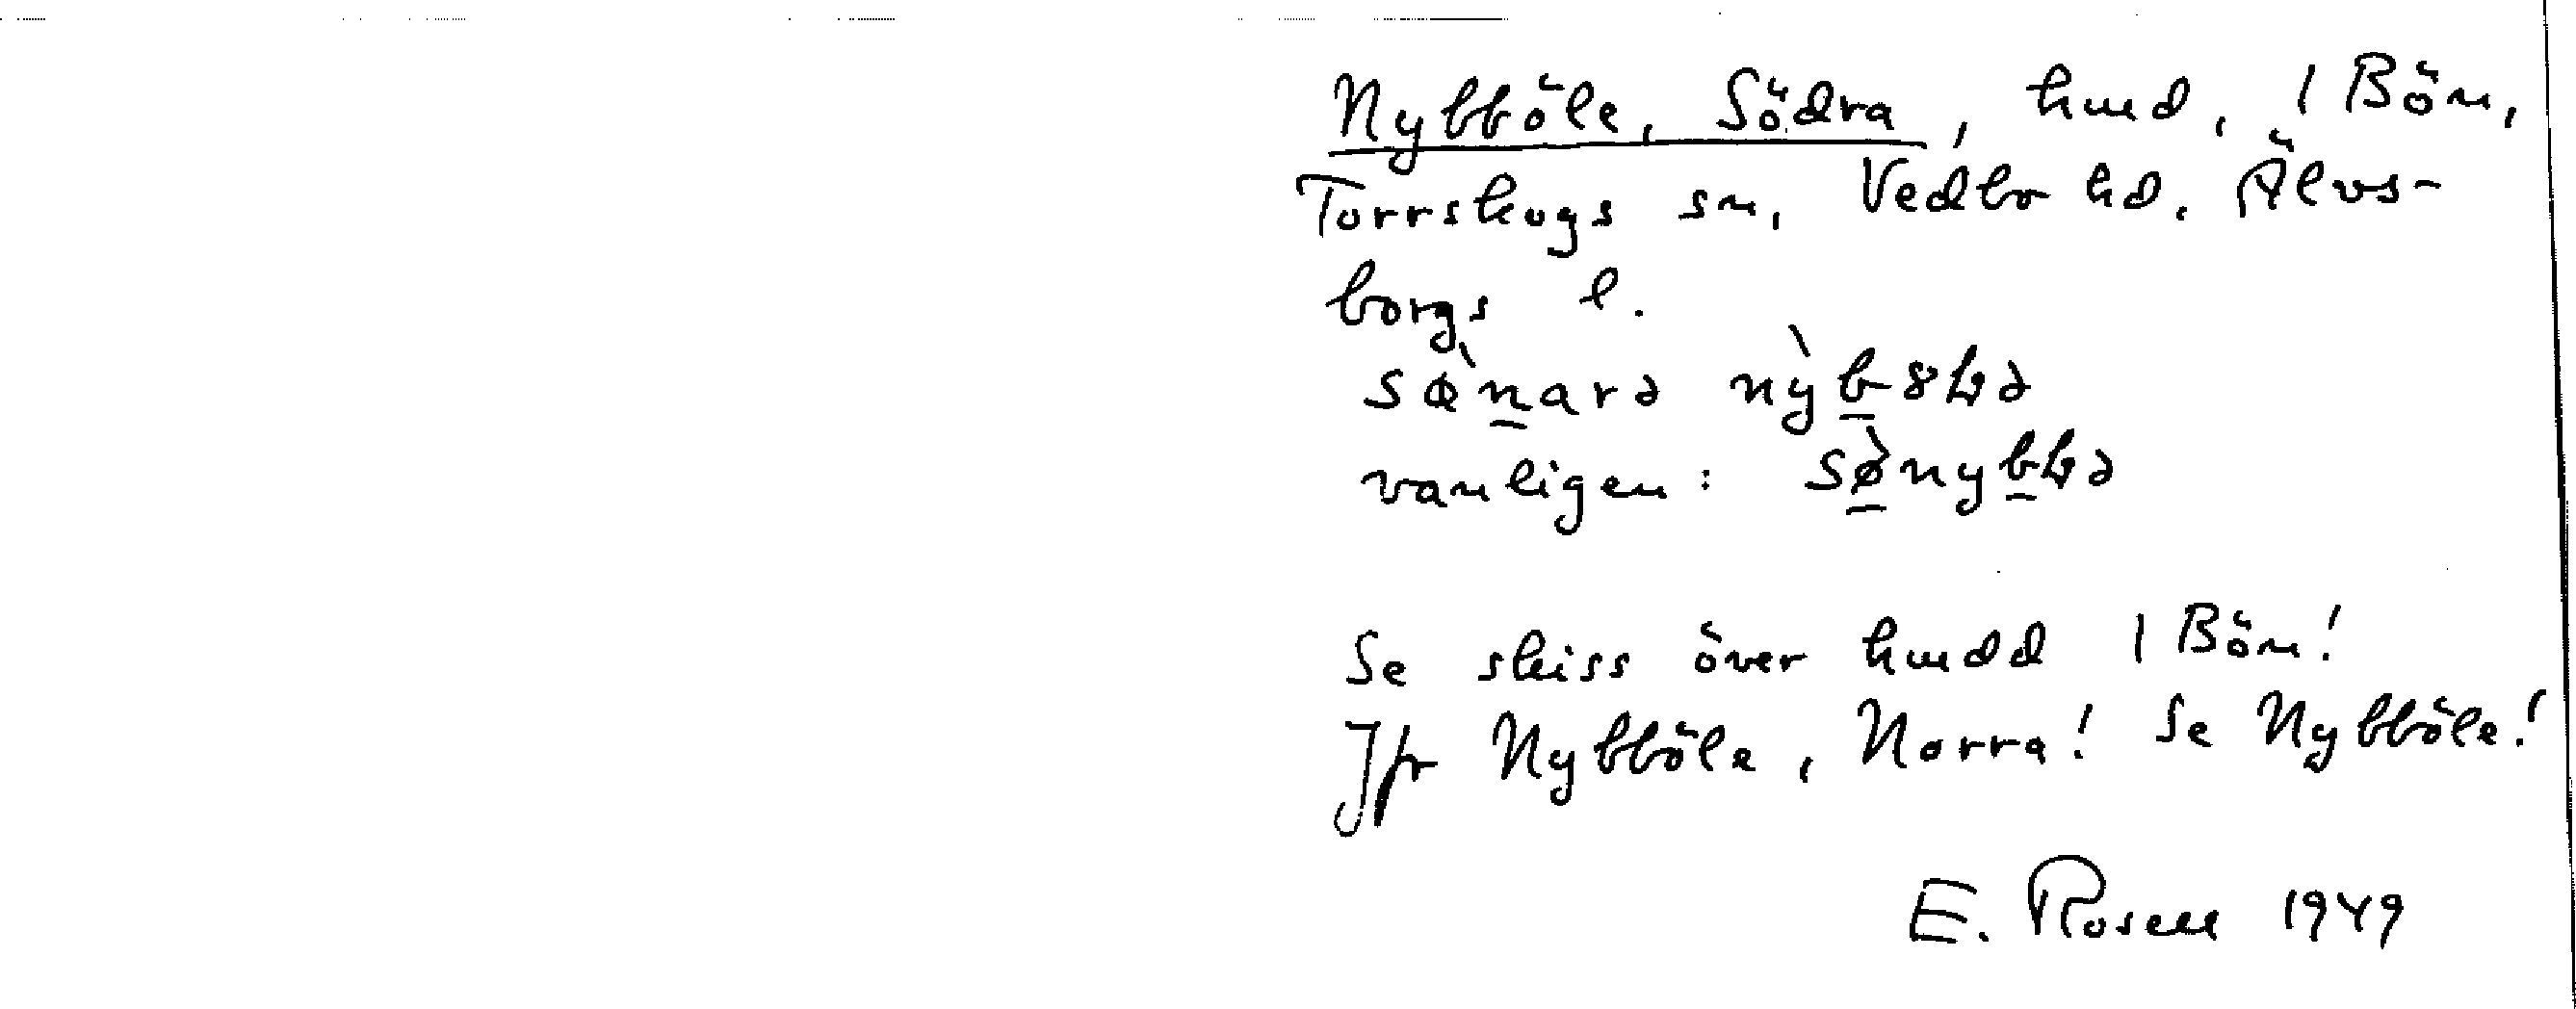 Nybböle, Södra, hmd, 1 Bön,
Torrskogs sn, Vedbo hd, Älvs-
borgs l.
vanligen:
Se skiss över hmdd 1 Bön!
Jfr Nybböle, Norra! Se Nybböle!
E. Rosell 1949